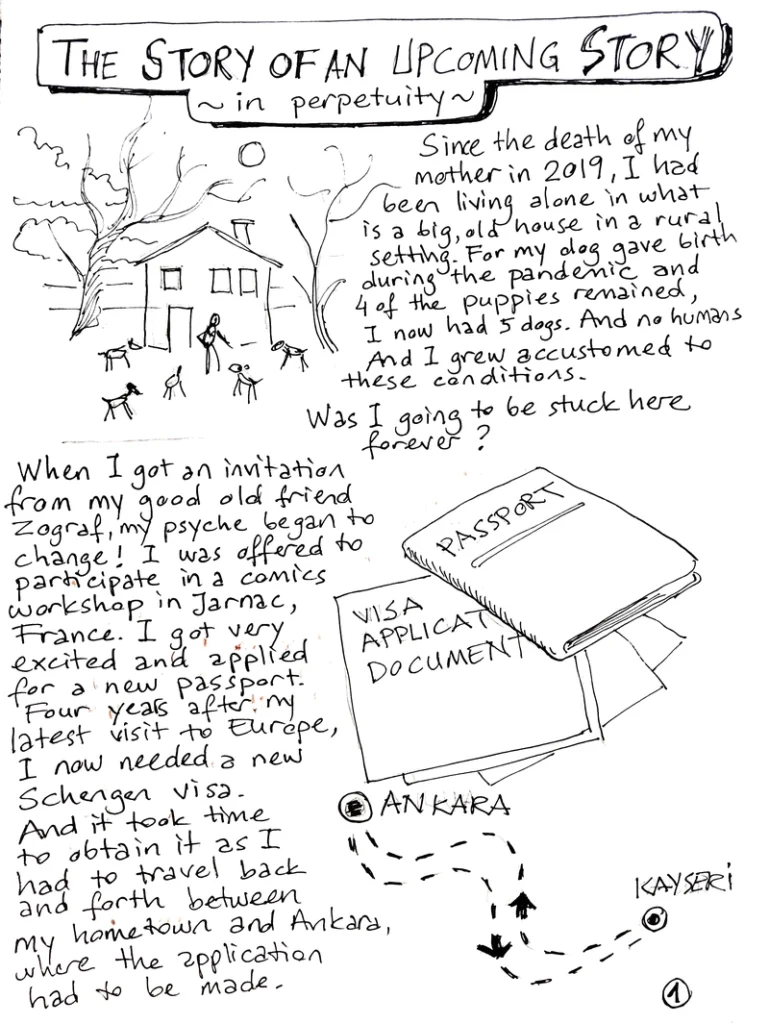 THE STORY OF AN UPCOMING STORY
~in perpetuity~
Since the death of my
mother in 2019, I had
been living alone in what
is a big, old house in a rural
setting. For my dog gave birth
during the pandemic and
4 of the puppies remained,
I now had 5 dogs. And no humans
And I grew accustomed to
these conditions.
Was I going to be stuck here
forever?
When I got an invitation
from my good old friend
Zograf, my psyche began to
change! I was offered to
participate in a comics
workshop in Jarnac,
France. I got very
excited and applied
for a new passport.
Four years after my
latest visit to Europe,
I now needed a new
Schengen visa.
And it took time
to obtain it as I
had to travel back
and forth between
my hometown and Ankara,
where the application
had to be made.
PASSPORT
VISA
APPLICAT
DOCUMENT
ANKARA
KAYSERİ
1